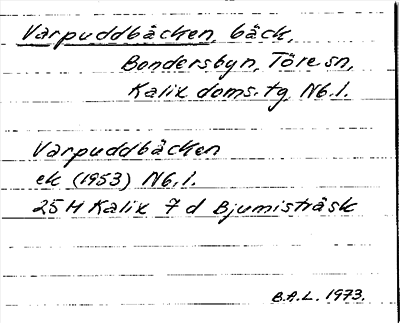 Varpuddbäcken, bäck,
Bondersbyn, Töre sn,
Kalix doms. tg, Nb. l.
Varpuddbäcken
ek (1953) Nb. l.
25 M Kalix 7 d Bjumisträsk
B.A.L. 1973.